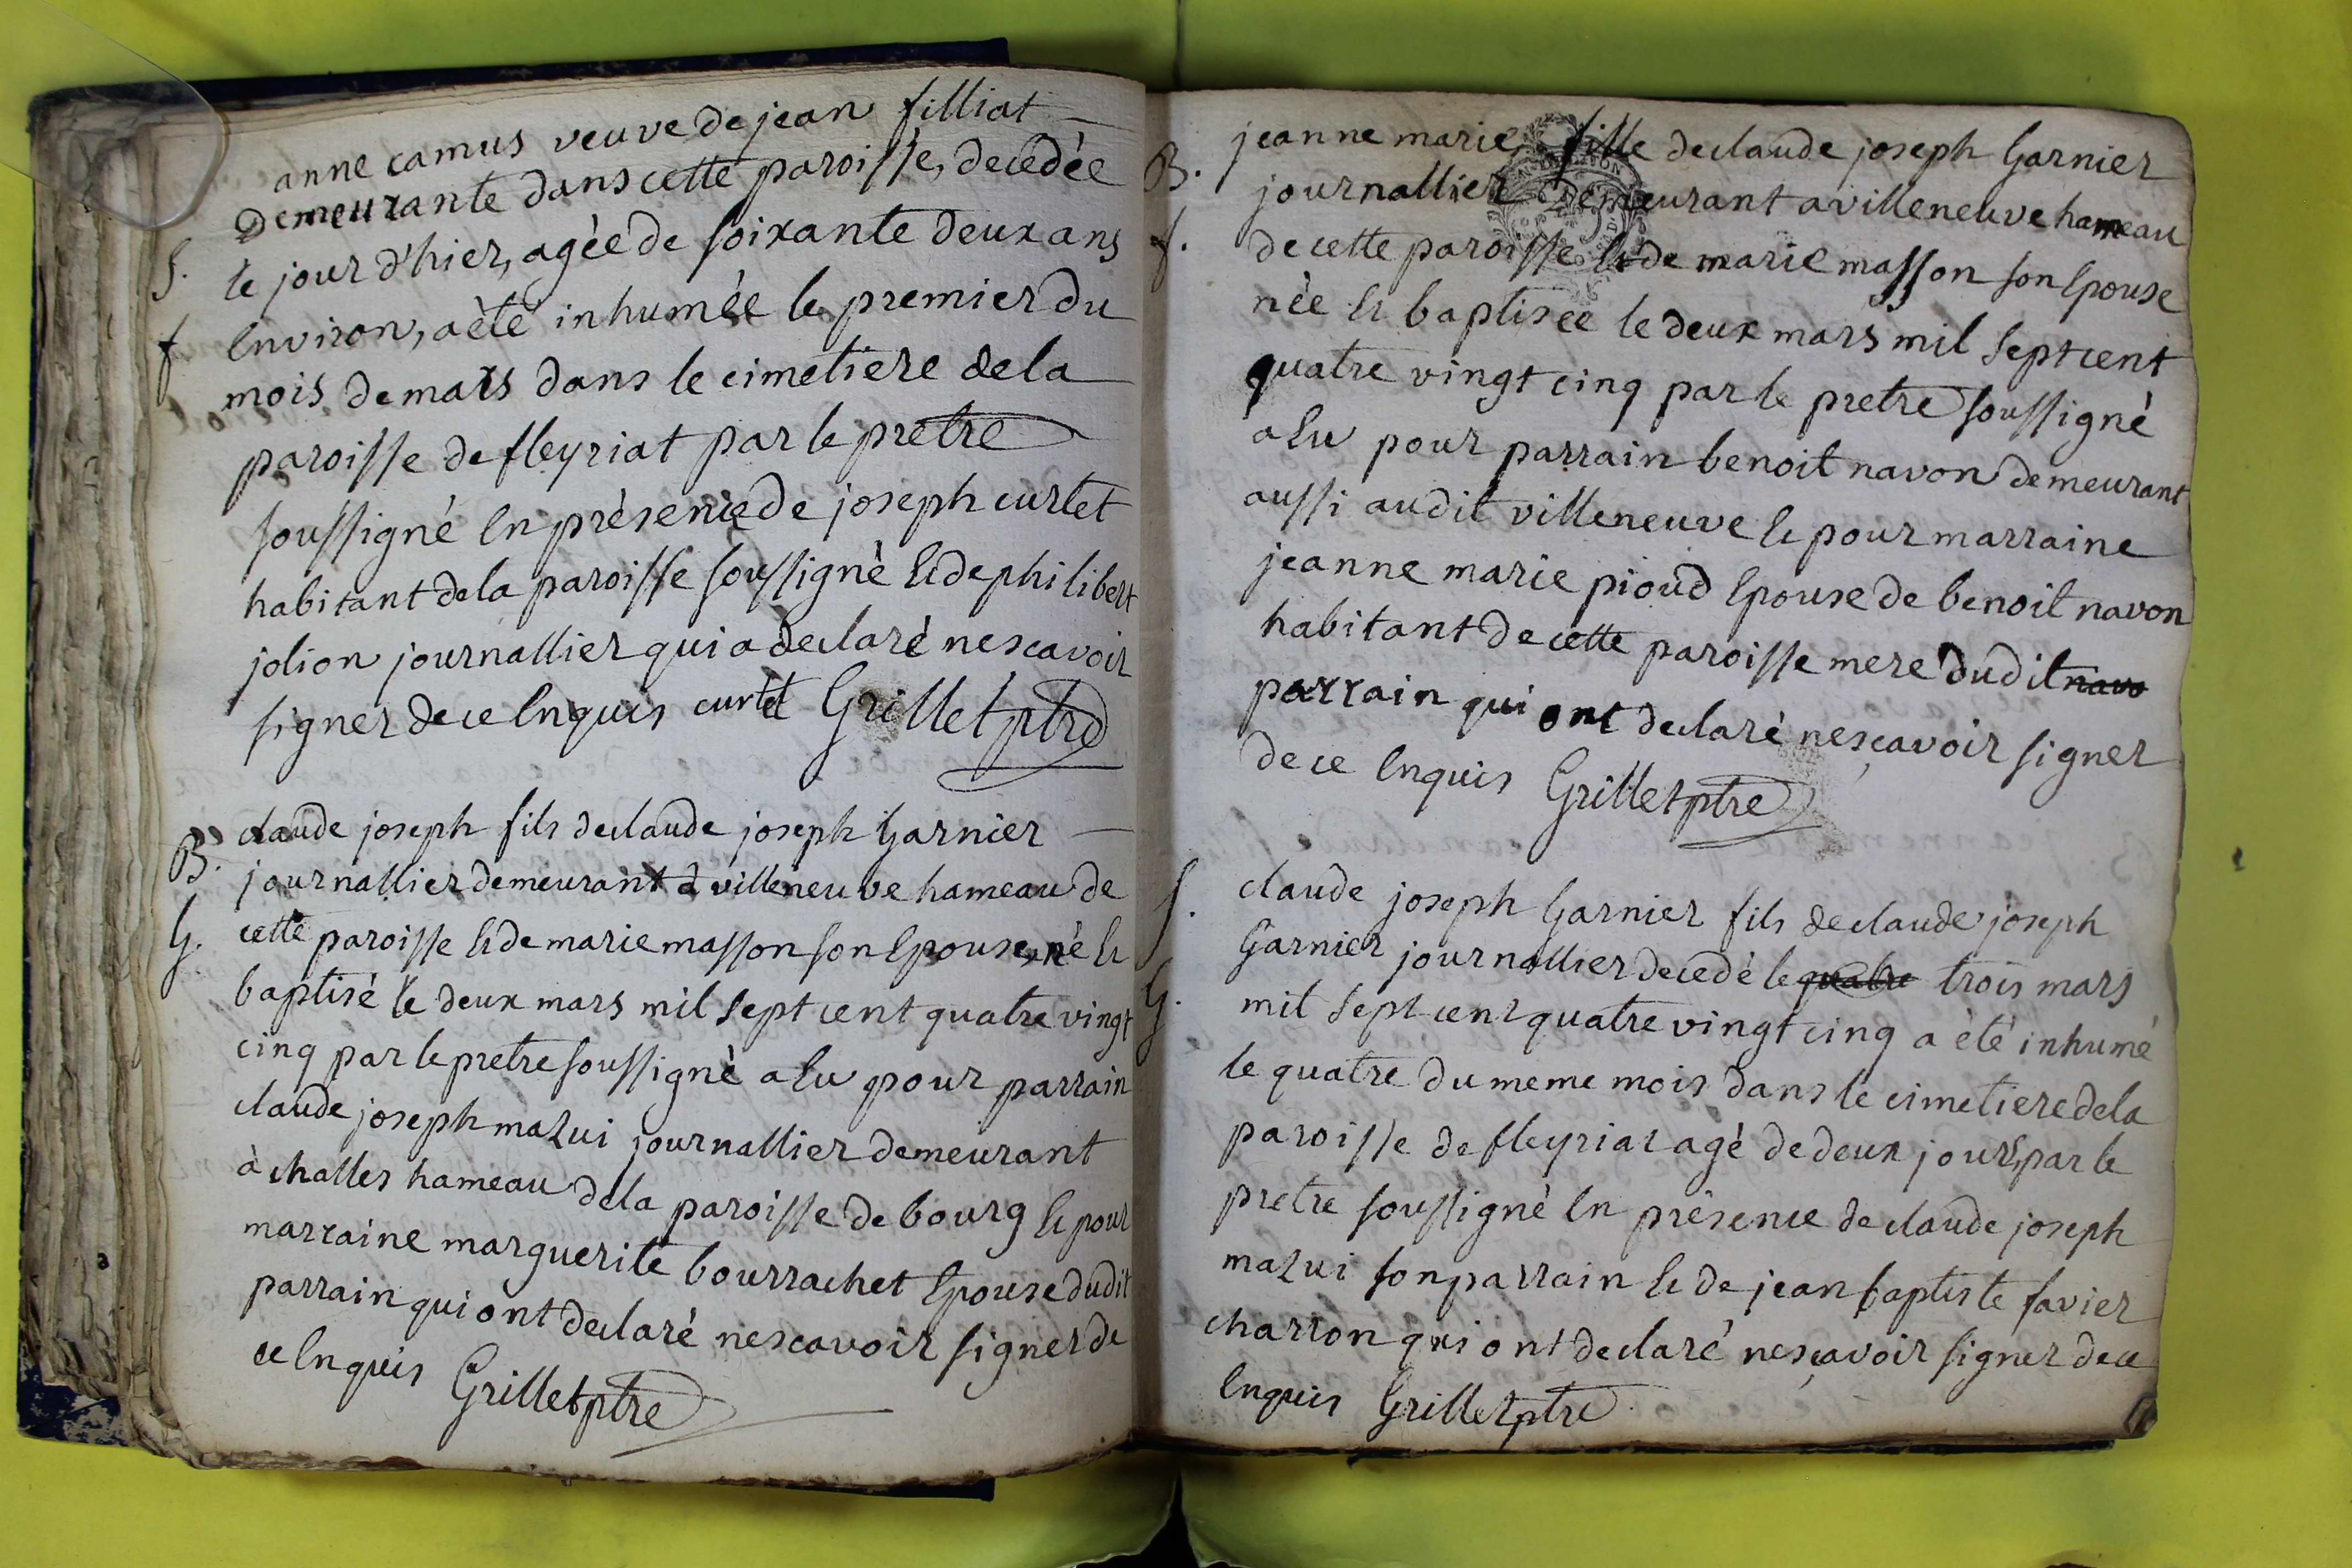 anne camus veuve de jean filliat
Demeurante dans cette paroisse, decedèe
S. le jour d'hier, agèe de soixante deux ans
f Environ, a èté inhumèe le premier du
mois de mars dans le cimetiere de la
paroisse de fleyriat par le pretre
soussigné En prèsence de joseph curtet
habitant de la paroisse soussigné Et de philibert
jolion journallier qui a declaré ne scavoir
signer de ce Enquis curtet Grillet ptre
B. claude joseph fils de claude joseph Garnier
journallier demeurant à villeneuve hameau de
G. cette paroisse Et de marie masson son Epouse, nè Et
baptisé le deux mars mil sept cent quatre vingt
cinq par le pretre soussigné a Eu pour parrain
claude joseph mazui journallier demeurant
à challes hameau de la paroisse de bourg Et pour
marraine marguerite bourrachet Epouse dudit
parrain qui ont declaré ne scavoir signer de
ce Enquis Grillet ptre
B. jeanne marie, fille de claude joseph Garnier
journallier Demeurant a villeneuve hameau
f. de cette paroisse Et de marie masson son Epouse
nèe Et baptisèe le deux mars mil sept cent
quatre vingt cinq par le pretre soussigné
a Eu pour parrain benoit navon demeurant
aussi audit villeneuve Et pour marraine
jeanne marie pioud Epouse de benoit navon
habitant de cette paroisse mere dudit navo
parrain qui ont declaré ne sçavoir signer
de ce Enquis Grillet ptre
S. claude joseph Garnier fils de claude joseph
Garnier journallier decedè le quatre trois mars
G. mil sept cent quatre vingt cinq a été inhumé
le quatre du meme mois dans le cimetiere de la
paroisse de fleyriat agè de deux jours, par le
pretre soussigné En présence de claude joseph
mazui son parrain Et de jean baptiste favier
charron qui ont declaré ne sçavoir signer de ce
Enquis Grillet ptre